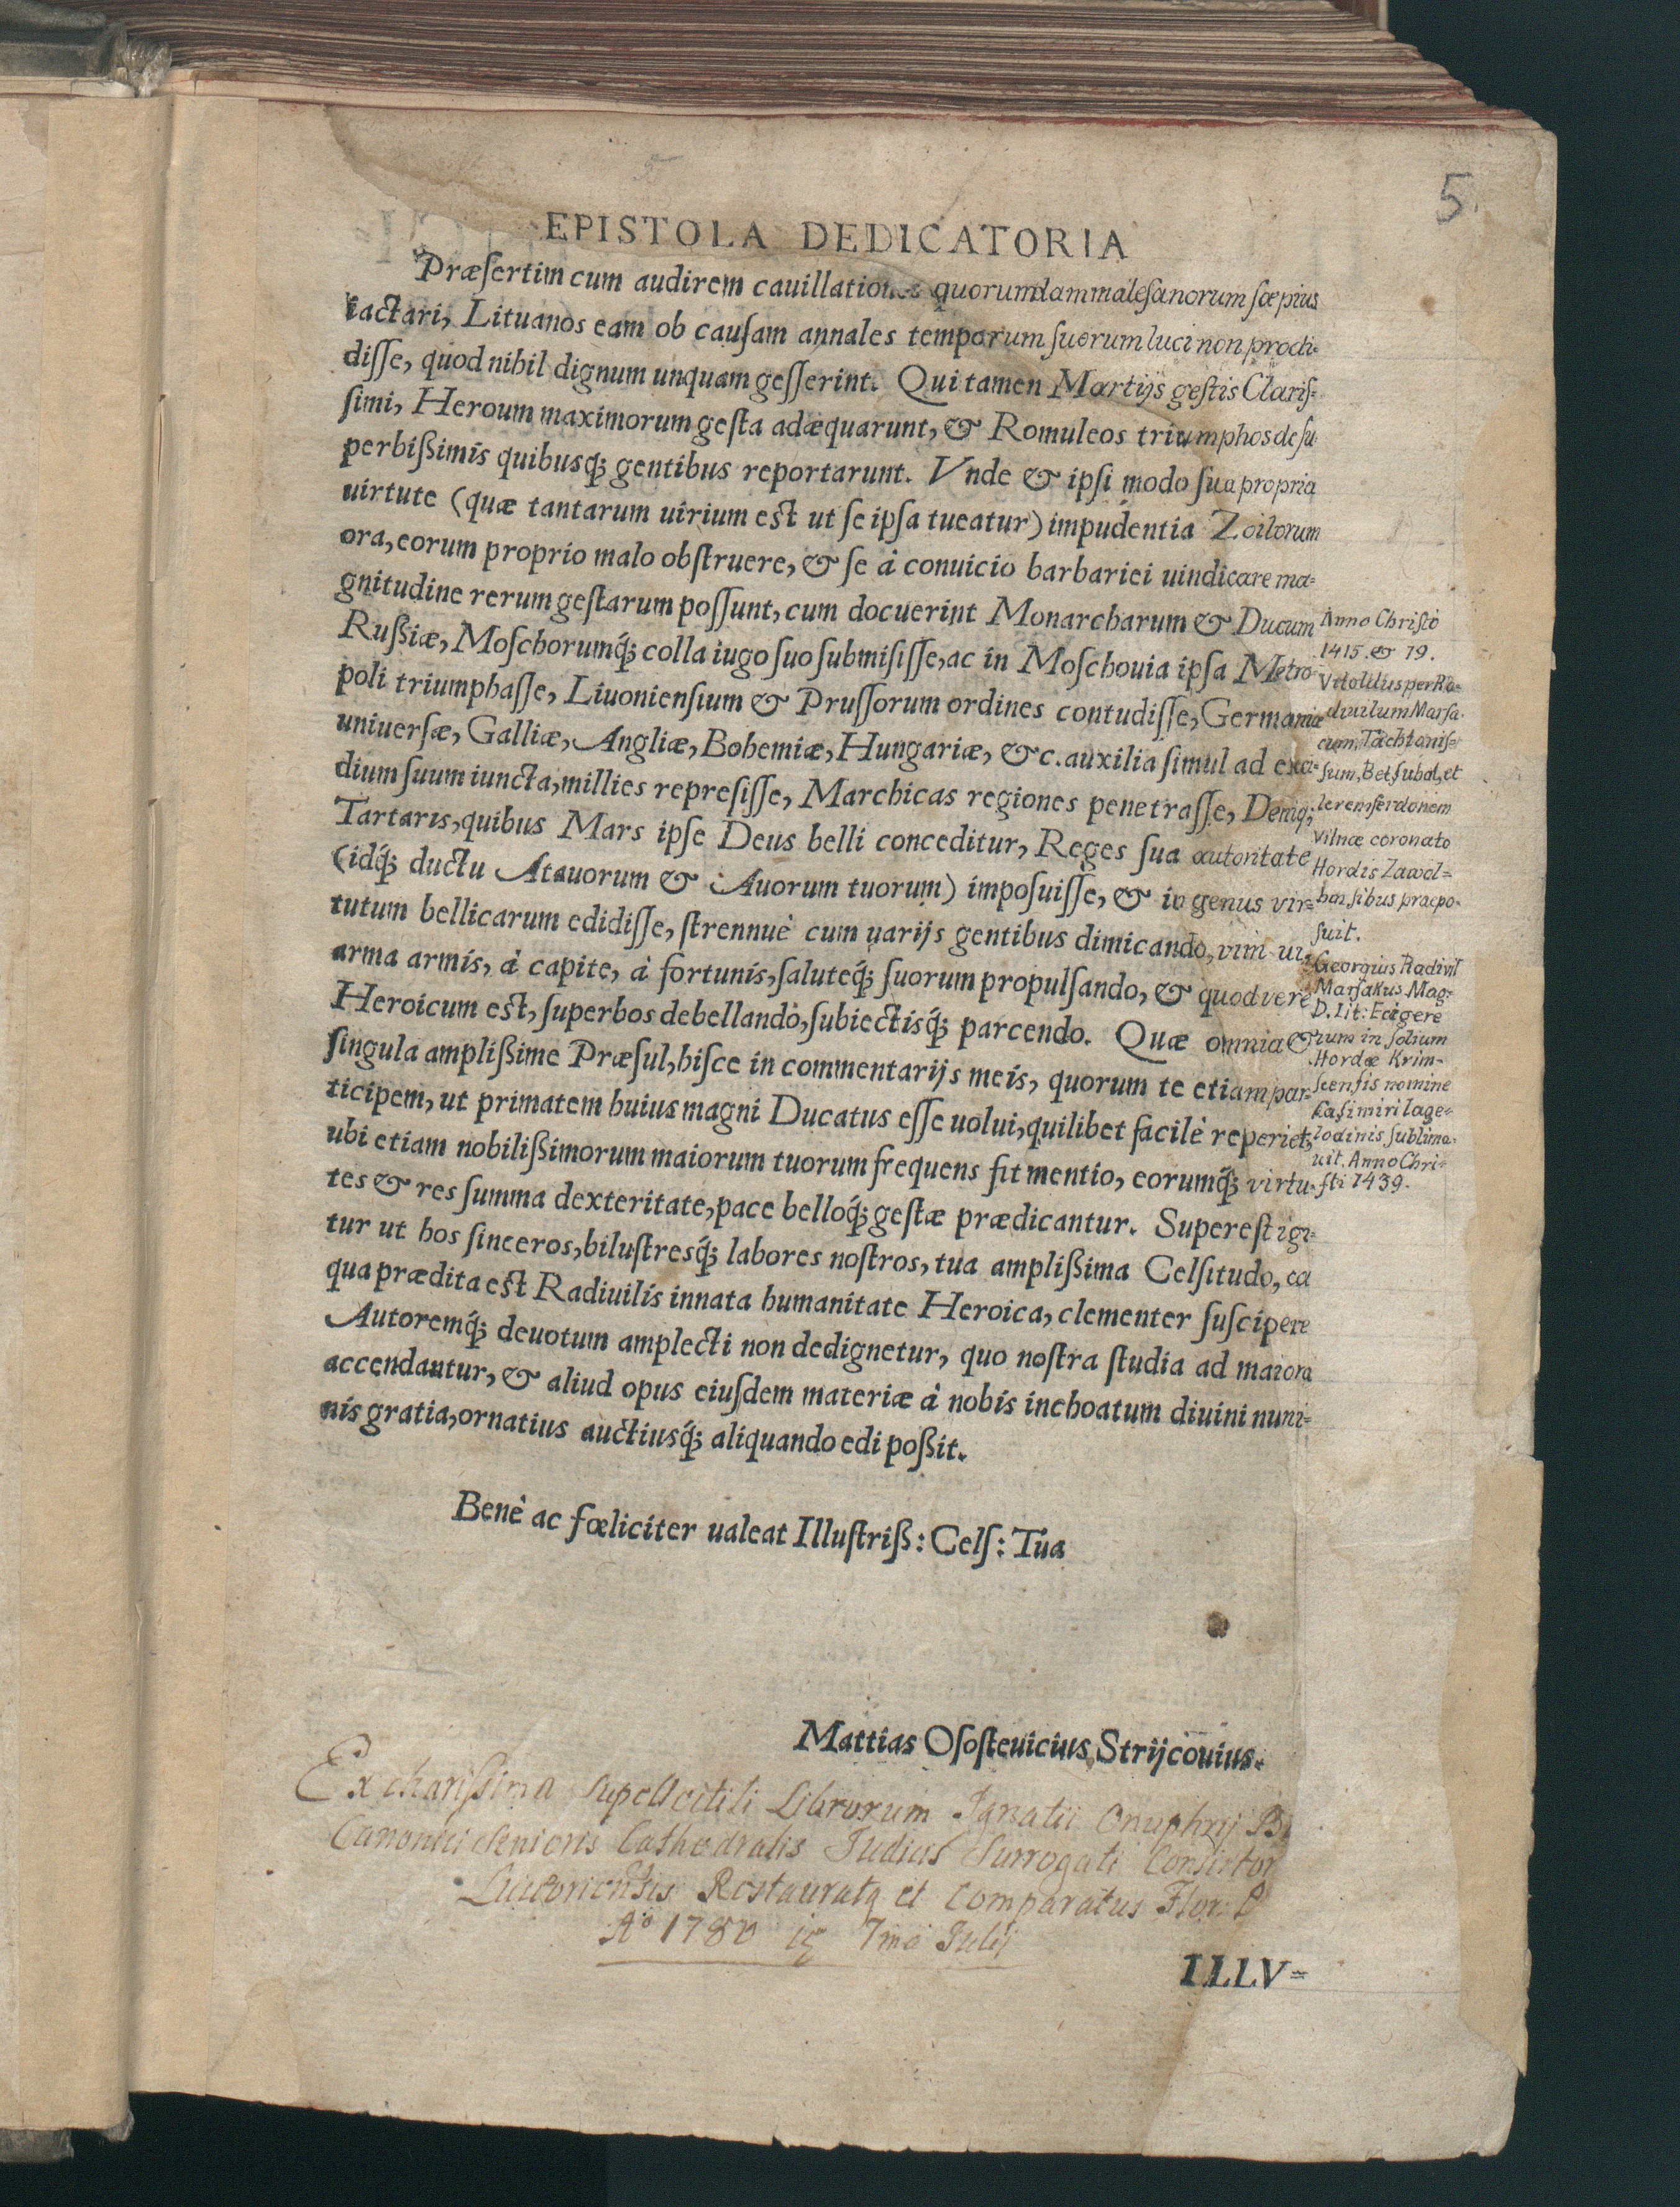 5
EPISTOLA DEDICATORIA
Præſertim cum audirem cauillationes quorumdam maleſanorum ſæpius
iactari, Lituanos eam ob cauſam annales temporum ſuorum luci non prodi-
diſſe, quod nihil dignum unquam geſſerint. Qui tamen Martijs geſtis Clariſ-
ſimi, Heroum maximorum geſta adæquarunt, & Romuleos triumphos de ſu-
perbißimis quibusq́; gentibus reportarunt. Vnde & ipſi modo ſua propria
uirtute (quæ tantarum uirium eſt ut ſe ipſa tueatur) impudentia Zoilorum
ora, eorum proprio malo obſtruere, & ſe à conuicio barbariei uindicare ma-
gnitudine rerum geſtarum poſſunt, cum docuerint Monarcharum & Ducum
Rußiæ, Moſchorumq́; colla iugo ſuo ſubmiſiſſe, ac in Moſchouia ipſa Metro-
poli triumphaſſe, Liuonienſium & Pruſſorum ordines contudiſſe, Germaniæ
uniuerſæ, Galliæ, Angliæ, Bohemiæ, Hungariæ, &c. auxilia ſimul ad exci-
dium ſuum iuncta, millies repreſiſſe, Marchicas regiones penetraſſe, Deniq;
Tartaris, quibus Mars ipſe Deus belli conceditur, Reges ſua autoritate
(idq́; ductu Atauorum & Auorum tuorum) impoſuiſſe, & id genus vir-
tutum bellicarum edidiſſe, ſtrennuè cum uarijs gentibus dimicando, vim ui,
arma armis, à capite, à fortunis, ſaluteq́; ſuorum propulſando, & quod vere
Heroicum eſt, ſuperbos debellandò, ſubiectisq́; parcendo. Quæ omnia &
ſingula amplißime Præſul, hiſce in commentarijs meis, quorum te etiam par-
ticipem, ut primatem huius magni Ducatus eſſe uolui, quilibet facilè reperiet,
ubi etiam nobilißimorum maiorum tuorum frequens fit mentio, eorumq́; virtu-
tes & res ſumma dexteritate, pace belloq́; geſtæ prædicantur. Supereſt igi-
tur ut hos ſinceros, biluſtresq́; labores noſtros, tua amplißima Celſitudo, ea
qua prædita eſt Radiuilis innata humanitate Heroica, clementer ſuſcipere
Autoremq́; deuotum amplecti non dedignetur, quo noſtra ſtudia ad maiora
accendantur, & aliud opus eiuſdem materiæ à nobis inchoatum diuini numi-
nis gratia, ornatius auctiusq́; aliquando edi poßit.
Anno Chriſto
1415. & 19.
Vitoldus per Ra-
diuilum Marſa-
cum, Tachtaniſ-
ſum, Betſubal, et
Ieremferdonem
Vilnæ coronato
Hordis Zawol-
henſibus præpo-
ſuit.
Georgius Radivil
Marſakus Mag:
D. Lit: Ecigere
ium in ſolium
Hordæ Krim-
ſcenſis nomine
Kaſimiri Iage-
lodinis ſublima-
uit. Anno Chri-
ſti 1439.
Benè ac fœliciter ualeat Illuſtriß: Celſ: Tua
Mattias Oſoſteuicius Strijcouius.
Ex charißima Supellectili Librorum Ignatii Onuphrij B
Canonici Senioris Cathedralis Judicis Surrogati Consistor
Restaurata et Comparatus Flor
Ao 1780 7ma Julij
ILLV=